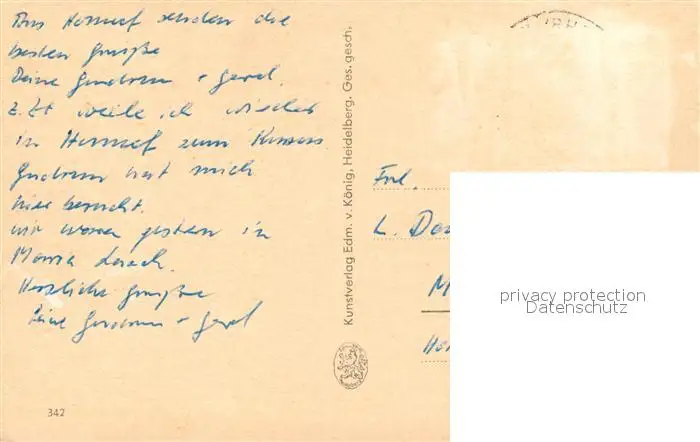 Aus Honnef senden die
besten Grüße
Deine Gudrun + Gerd.
z.Zt weile ich wieder
in Honnef zum Kursus.
Gudrun hat mich
hier besucht.
wir waren gestern in
Maria Laach.
Herzliche Grüße
Deine Gudrun + Gerd
342
Kunstverlag Edm. v. König, Heidelberg. Ges. gesch.
Frl.
L.
M
privacy protection
Datenschutz